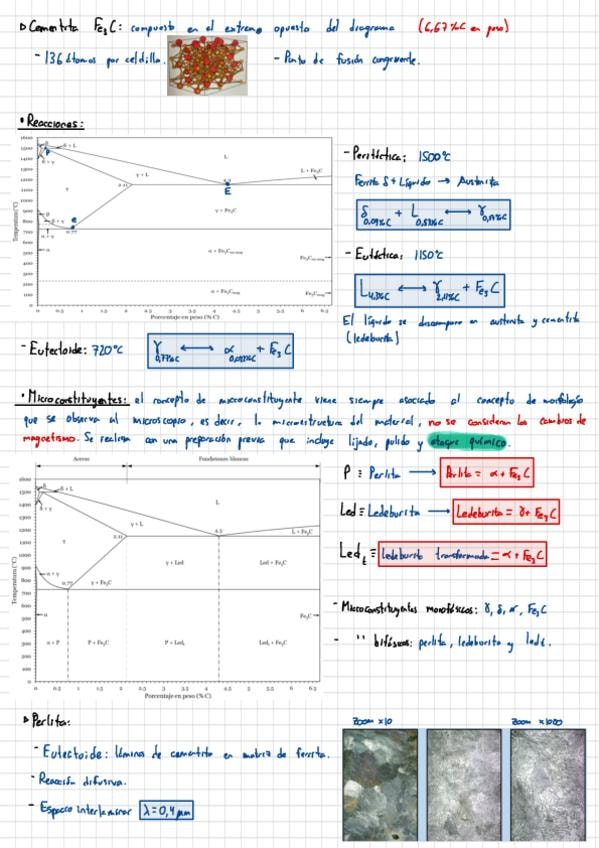 ▷ Cementita Fe₃C: compuesto en el extremo opuesto del diagrama (6,67%C en peso)
- 136 átomos por celdilla.
- Punto de fusión congruente.
• Reacciones:
- Peritéctica: 1500ºC
Ferrita δ + Líquido → Austenita
δ 0,09%C + L 0,53%C ⟷ γ 0,17%C
- Eutéctica: 1150ºC
L 4,3%C ⟷ γ 2,11%C + Fe₃C
El líquido se descompone en austenita y cementita
(ledeburita)
Temperatura (°C)
1600
1500
1400
1300
1200
1100
1000
900
800
700
600
500
400
300
200
100
0
δ + L
δ + γ
L
γ + L
L + Fe₃C
2.11
4.3
E
γ
γ + Fe₃C
e
0.77
α + γ
α
0 0.5 1 1.5 2 2.5 3 3.5 4 4.5 5 5.5 6 6.5
Porcentaje en peso (% C)
- Eutectoide: 720ºC
γ 0,77%C ⟷ α + Fe₃C
• Microconstituyentes: el concepto de microconstituyente viene siempre asociado al concepto de morfología
que se observa al microscopio, es decir, la microestructura del material, no se consideran los cambios de
magnetismo. Se realizan con una preparación previa que incluye lijado, pulido y ataque químico.
Aceros
Fundiciones blancas
Temperatura (°C)
1600
1500
1400
1300
1200
1100
1000
900
800
700
600
500
400
300
200
100
0
δ
δ + L
δ + γ
L
γ + L
L + Fe₃C
2.11
4.3
γ
γ + Led
Led + Fe₃C
0.77
γ + Fe₃C
α + γ
α
Fe₃C
α + P
P + Fe₃C
P + Ledₜ
Ledₜ + Fe₃C
0 0.5 1 1.5 2 2.5 3 3.5 4 4.5 5 5.5 6 6.5
Porcentaje en peso (% C)
P ≡ Perlita → Perlita = α + Fe₃C
Led ≡ Ledeburita → Ledeburita = γ + Fe₃C
Ledₜ ≡ Ledeburita transformada = α + Fe₃C
- Microconstituyentes monofásicos: γ, δ, α, Fe₃C
- " bifásicos: perlita, ledeburita y ledₜ.
▷ Perlita:
- Eutectoide: lámina de cementita en matriz de ferrita.
- Reacción difusiva.
- Espacio interlaminar λ = 0,4 μm
Zoom x10
Zoom x1000